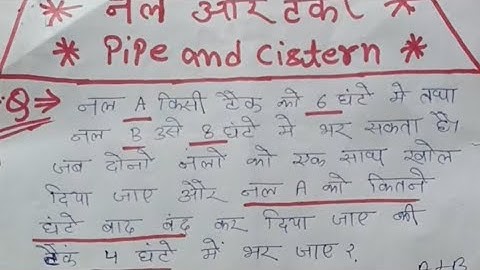 * नल और टंकी *
* Pipe and Cistern *
Q⇒ नल A किसी टैंक को 6 घंटे में तथा
नल B उसे 8 घंटे में भर सकता है।
जब दोनों नलों को एक साथ खोल
दिया जाए और नल A को कितने
घंटे बाद बंद कर दिया जाए की
टैंक 4 घंटे में भर जाए?
A+B